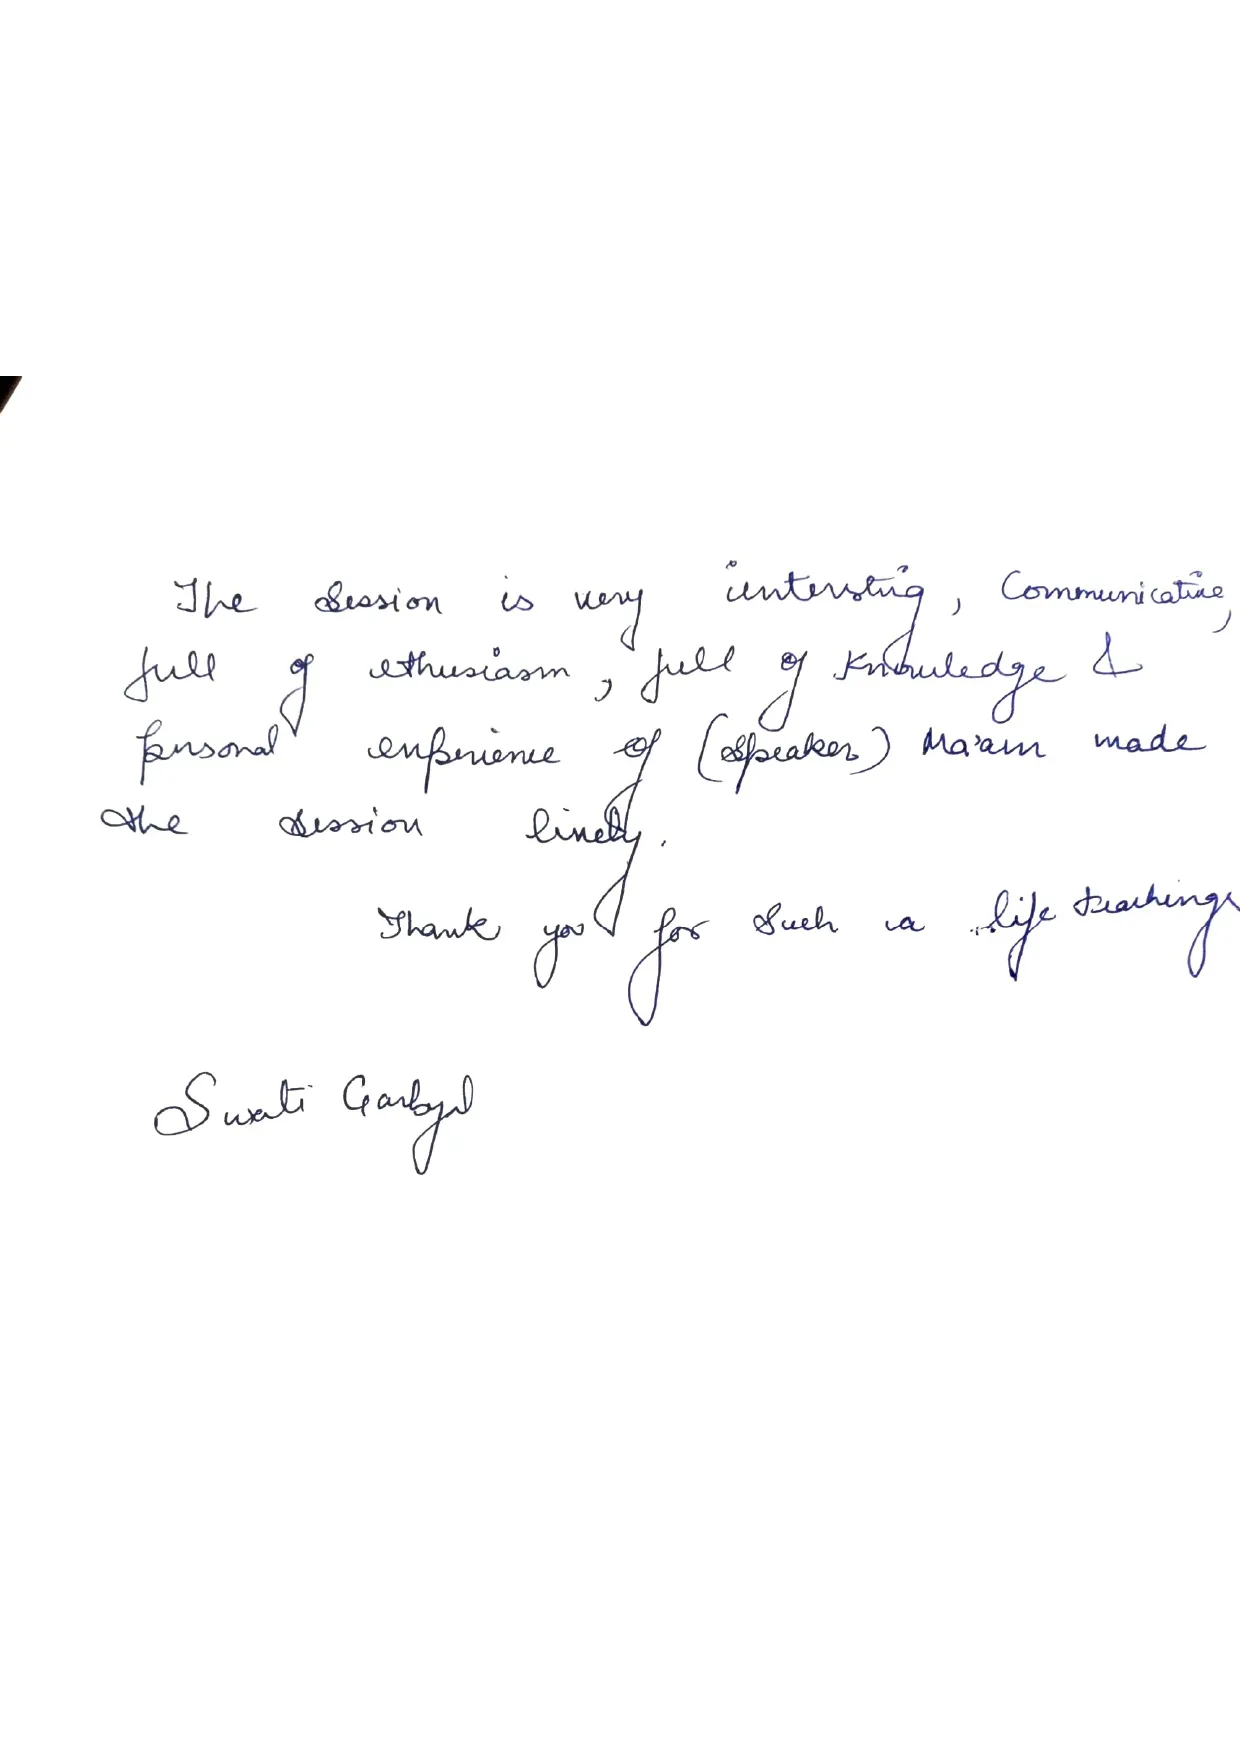 The Session is very intersting, Communicative,
full of ethusiasm, full of Knowledge &
personal experience of (Speaker) Ma'am made
the session lively.
Thank you for such a life teachings
Swati Garbyal